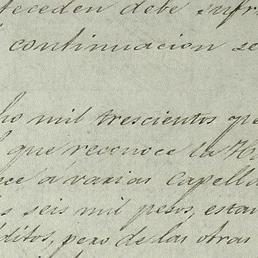 teceden debe sufr
continuacion se
ho mil trescientos que
que reconoce la
ce a varias Capella
s seis mil pesos, esta
ditos, pero de las otras